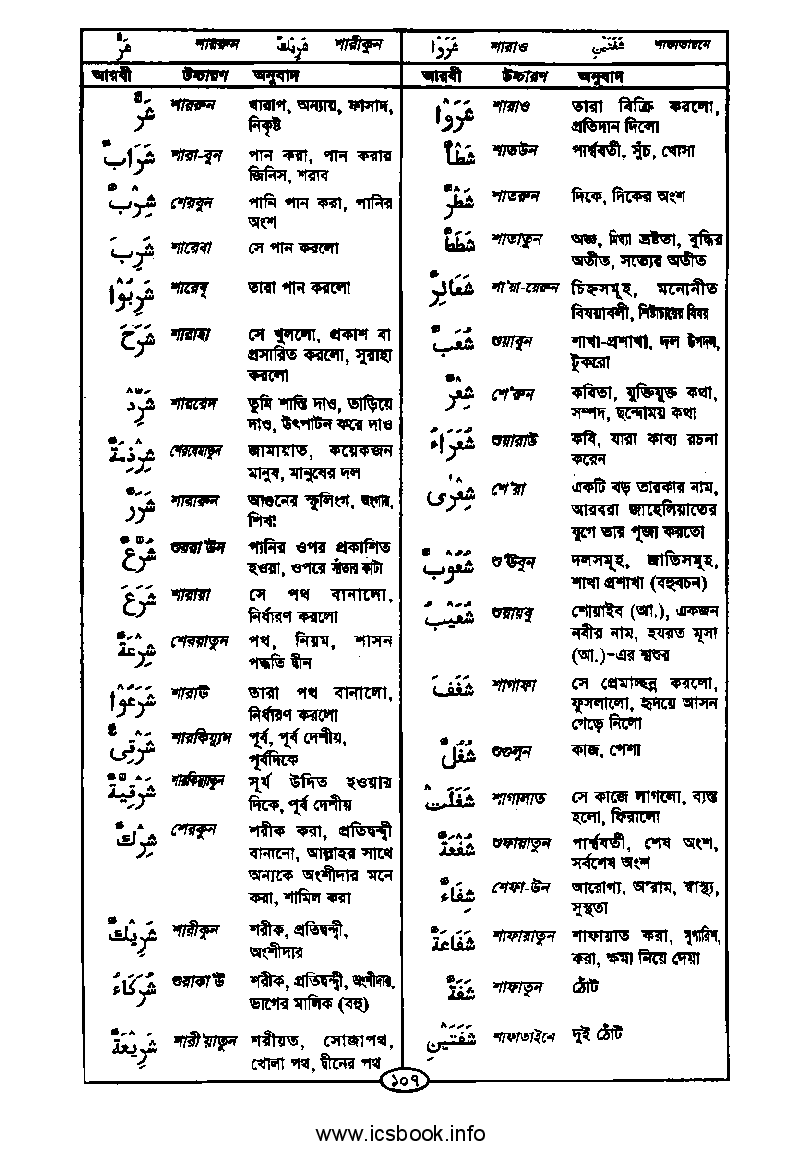 شَرٌّ শাররুন شَرِيْكٌ শারীকুন
আরবী উচ্চারণ অনুবাদ
شَرٌّ শাররুন খারাপ, অন্যায়, ফাসাদ,
নিকৃষ্ট
شَرَابٌ শারা-বুন পান করা, পান করার
জিনিস, শরাব
شِرْبٌ শেরবুন পানি পান করা, পানির
অংশ
شَرِبَ শারেবা সে পান করলো
شَرِبُوْا শারেবূ তারা পান করলো
شَرَحَ শারাহা সে খুললো, প্রকাশ বা
প্রসারিত করলো, সুরাহা
করলো
شَرِّدْ শাররেদ তুমি শাস্তি দাও, তাড়িয়ে
দাও, উৎপাটন করে দাও
شِرْذِمَةٌ শেরযেমাতুন জামায়াত, কয়েকজন
মানুষ, মানুষের দল
شَرَرٌ শারারুন আগুনের স্ফুলিংগ, অংগার,
শিখা
شُرَّعٌ শুররা'উন পানির ওপর প্রকাশিত
হওয়া, ওপরে সাঁতার কাটা
شَرَعَ শারায়া সে পথ বানালো,
নির্ধারণ করলো
شِرْعَةٌ শেরয়াতুন পথ, নিয়ম, শাসন
পদ্ধতি দ্বীন
شَرَعُوْا শারাউ তারা পথ বানালো,
নির্ধারণ করলো
شَرْقِيٌّ শারকিয়্যুন পূর্ব, পূর্ব দেশীয়,
পূর্বদিকে
شَرْقِيَّةٌ শারকিয়্যাতুন সূর্য উদিত হওয়ার
দিকে, পূর্ব দেশীয়
شِرْكٌ শেরকুন শরীক করা, প্রতিদ্বন্দ্বী
বানানো, আল্লাহর সাথে
অন্যকে অংশীদার মনে
করা, শামিল করা
شَرِيْكٌ শারীকুন শরীক, প্রতিদ্বন্দ্বী,
অংশীদার
شُرَكَاءُ শুরাকা'উ শরীক, প্রতিদ্বন্দ্বী, অংশীদার,
ভাগের মালিক (বহু)
شَرِيْعَةٌ শারী'য়াতুন শরীয়ত, সোজাপথ,
খোলা পথ, দ্বীনের পথ
شَرَوْا শারাও شَفَتَيْنِ শাফাতায়নে
আরবী উচ্চারণ অনুবাদ
شَرَوْا শারাও তারা বিক্রি করলো,
প্রতিদান দিলো
شَطْأٌ শাতউন পার্শ্ববর্তী, সুঁচ, খোসা
شَطْرٌ শাতরুন দিকে, দিকের অংশ
شَطَطًا শাতাতুন অজ্ঞ, মিথ্যা ভ্রষ্টতা, বুদ্ধির
অতীত, সত্যের অতীত
شَعَائِرُ শা'য়া-য়েরুন চিহ্নসমূহ, মনোনীত
বিষয়াবলী, শিষ্টাচারের বিষয়
شُعَبٌ শুয়াবুন শাখা-প্রশাখা, দল উপদল,
টুকরো
شِعْرٌ শে'রুন কবিতা, যুক্তিযুক্ত কথা,
সম্পদ, ছন্দোময় কথা
شُعَرَاءُ শুয়ারাউ কবি, যারা কাব্য রচনা
করেন
شِعْرٰى শে'রা একটি বড় তারকার নাম,
আরবরা জাহেলিয়াতের
যুগে তার পূজা করতো
شُعُوْبٌ শু'ঊবুন দলসমূহ, জাতিসমূহ,
শাখা প্রশাখা (বহুবচন)
شُعَيْبٌ শুয়ায়বু শোয়াইব (আ.), একজন
নবীর নাম, হযরত মূসা
(আ.)-এর শ্বশুর
شَغَفَ শাগাফা সে প্রেমাচ্ছন্ন করলো,
ফুসলালো, হৃদয়ে আসন
গেড়ে নিলো
شُغُلٌ শুগুলুন কাজ, পেশা
شَغَلَتْ শাগালাত সে কাজে লাগলো, ব্যস্ত
হলো, ফিরালো
شُفْعَةٌ শুফায়াতুন পার্শ্ববর্তী, শেষ অংশ,
সর্বশেষ অংশ
شِفَاءٌ শেফা-উন আরোগ্য, আরাম, স্বাস্থ্য,
সুস্থতা
شَفَاعَةٌ শাফায়াতুন শাফায়াত করা, সুপারিশ,
করা, ক্ষমা নিয়ে দেয়া
شَفَةٌ শাফাতুন ঠোঁট
شَفَتَيْنِ শাফাতাইনে দুই ঠোঁট
১০৭
www.icsbook.info